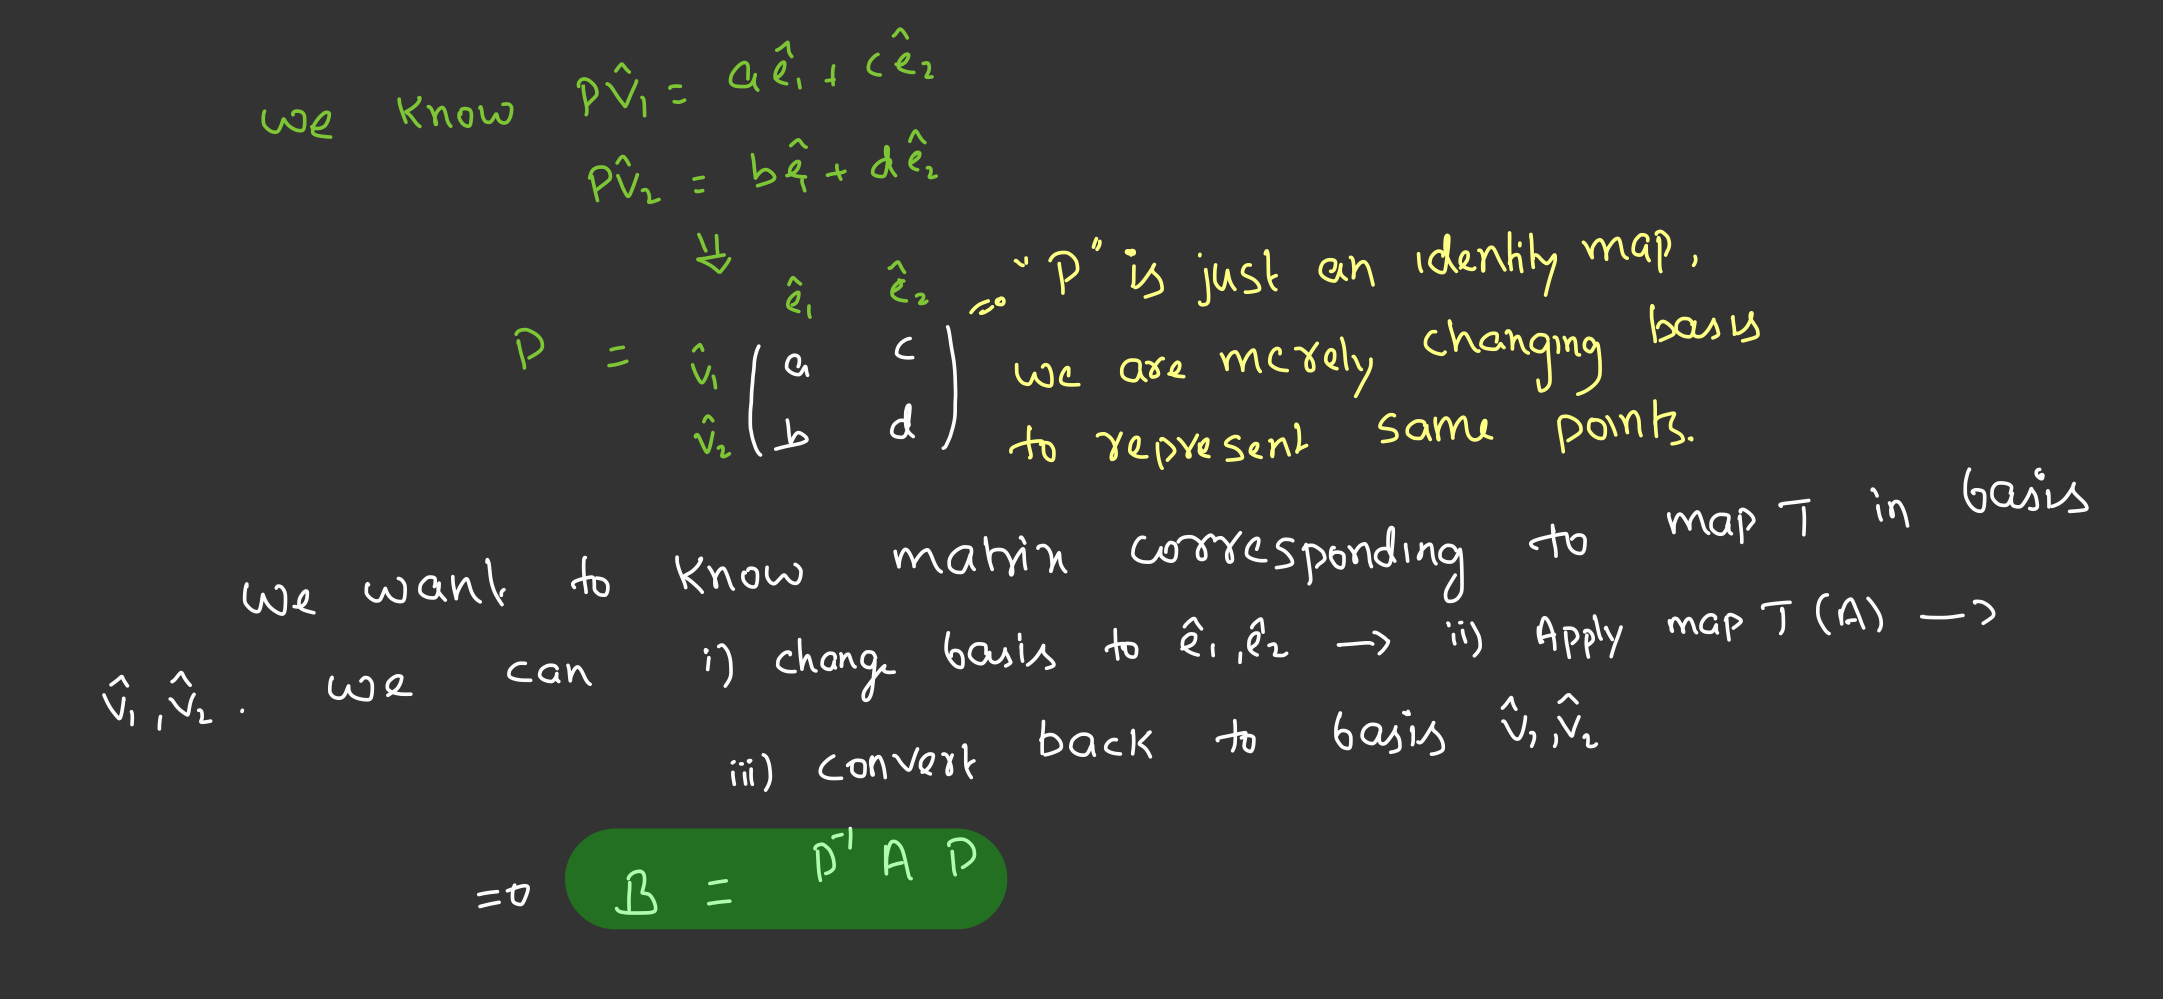 we know Pv̂₁ = aê₁ + cê₂
Pv̂₂ = bê₁ + dê₂
⇓
ê₁ ê₂
P = v̂₁ ( a c
v̂₂ b d )
⇒ "P" is just an identity map,
we are merely changing basis
to represent same points.
we want to know matrix corresponding to map T in basis
v̂₁, v̂₂. we can i) change basis to ê₁, ê₂ → ii) Apply map T (A) →
iii) convert back to basis v̂₁, v̂₂
⇒ B = P⁻¹ A P